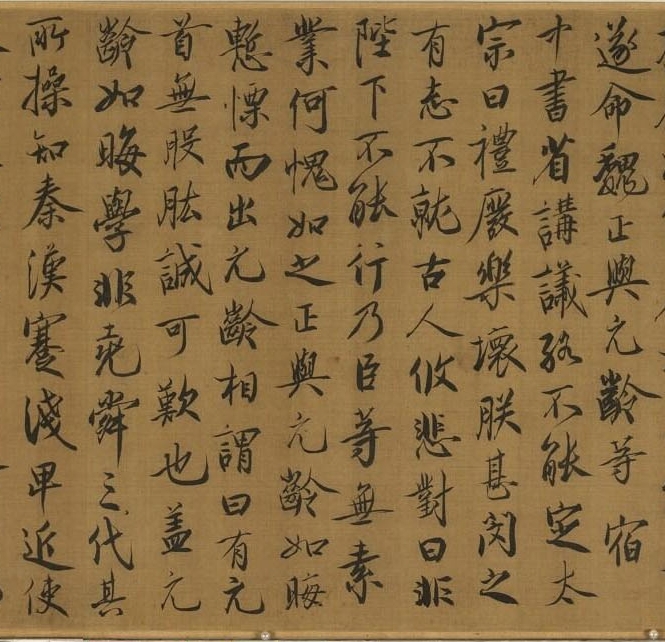 遂命魏正與元齡等宿
中書省講議終不能定太
宗曰禮廢樂壞朕甚閔之
有志不就古人攸悲對曰非
陛下不能行乃臣等無素
業何愧如之正與元齡如晦
慙慄而出元齡相謂曰有元
首無股肱誠可歎也盖元
齡如晦學非堯舜三代其
所操知秦漢蹇淺卑近使